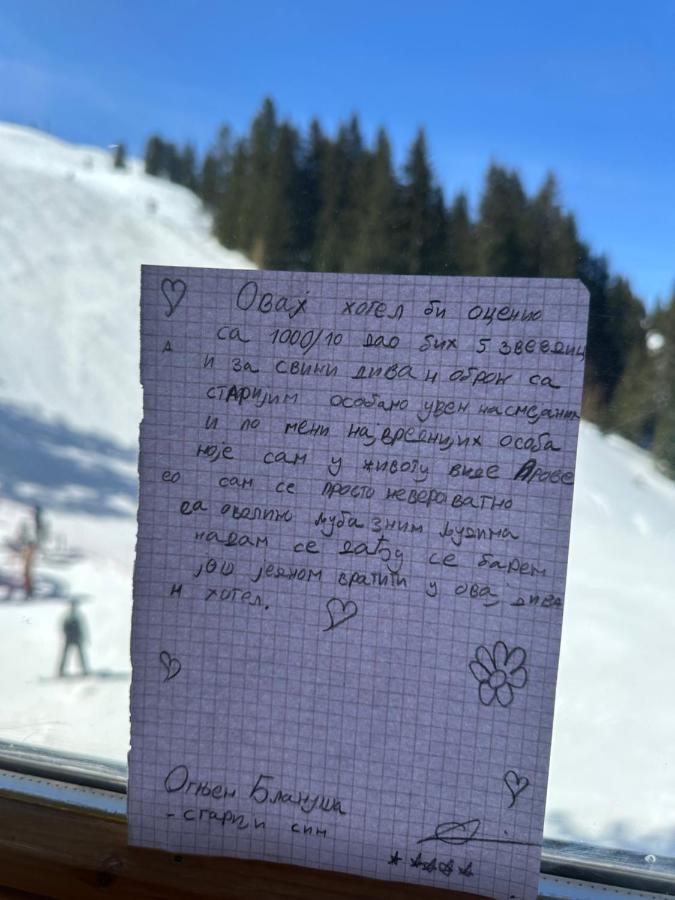 Овај хотел би оценио
са 1000/10 дао бих 5 звездиц
а и за свини диван оброк са
старијим особано увен насмејаним
и по мени највреднцих особа
које сам у животу виде Прове
ео сам се просто невераватно
са оволино љуба зним људима
надам се даћу се барем
још једном вратити у овај дива
н хотел.
Огњен Блануша
- старији син